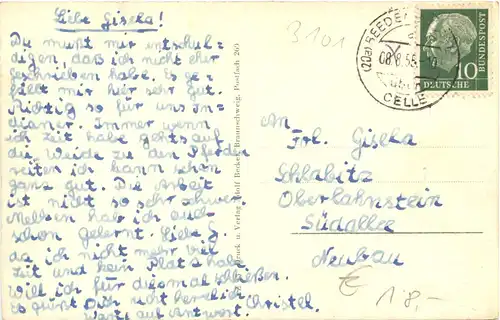 Liebe Gisela!
Du mußt mir entschul-
digen, daß ich nicht eher
geschrieben habe. Es ge-
fällt mir hier sehr gut.
Richtig so für uns In-
dianer. Immer wenn
ich Zeit habe gehts auf
die Weide zu den Pferden
reiten ich kann schon
ganz gut. Die Arbeit
ist nicht so sehr schwer.
Melken hab ich auch
schon gelernt. Liebe G.
da ich nicht mehr viel
Zeit und kein Platz habe
will ich für diesmal schließen.
Es grüßt Dich recht herzlich
Christel.
Warte auf Antwort.
Druck u. Verlag: Rudolf Becker, Braunschweig, Postfach 265
3101
(20a)
08.8.55
CELLE
10
DEUTSCHE
BUNDESPOST
An
Frl. Gisela
Schlabitz
Oberlahnstein
Südallee
Neubau
€ 18,-